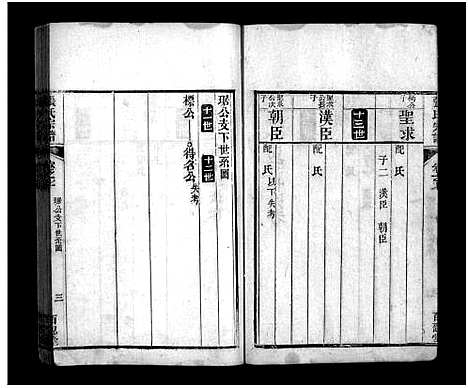 聖求
配 氏
子二 漢臣 朝臣
十三世
漢臣
配 氏
朝臣
配 氏
以下失考
公支下世系圖
十一世 十二世
標公 得名公失考
張氏宗譜
公支下世系圖
三
百忍堂